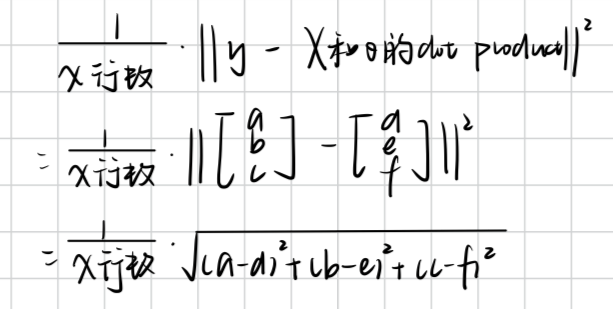 1/X行数 · ||y - X和θ的dot product||²
= 1/X行数 · ||[a b c] - [d e f]||²
= 1/X行数 · √(a-d)²+(b-e)²+(c-f)²